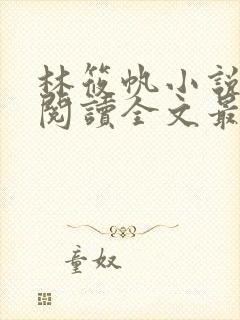 林筱帆小說
閱讀全文最
童奴